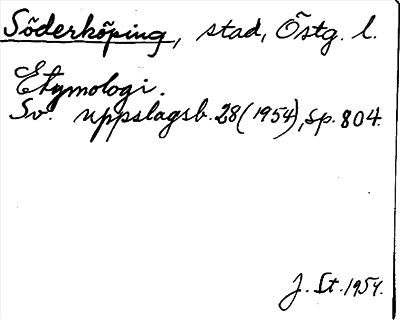 Söderköping, stad, Östg. l.
Etymologi.
Sv. uppslagsb. 28(1954), sp. 804.
J. St. 1954.